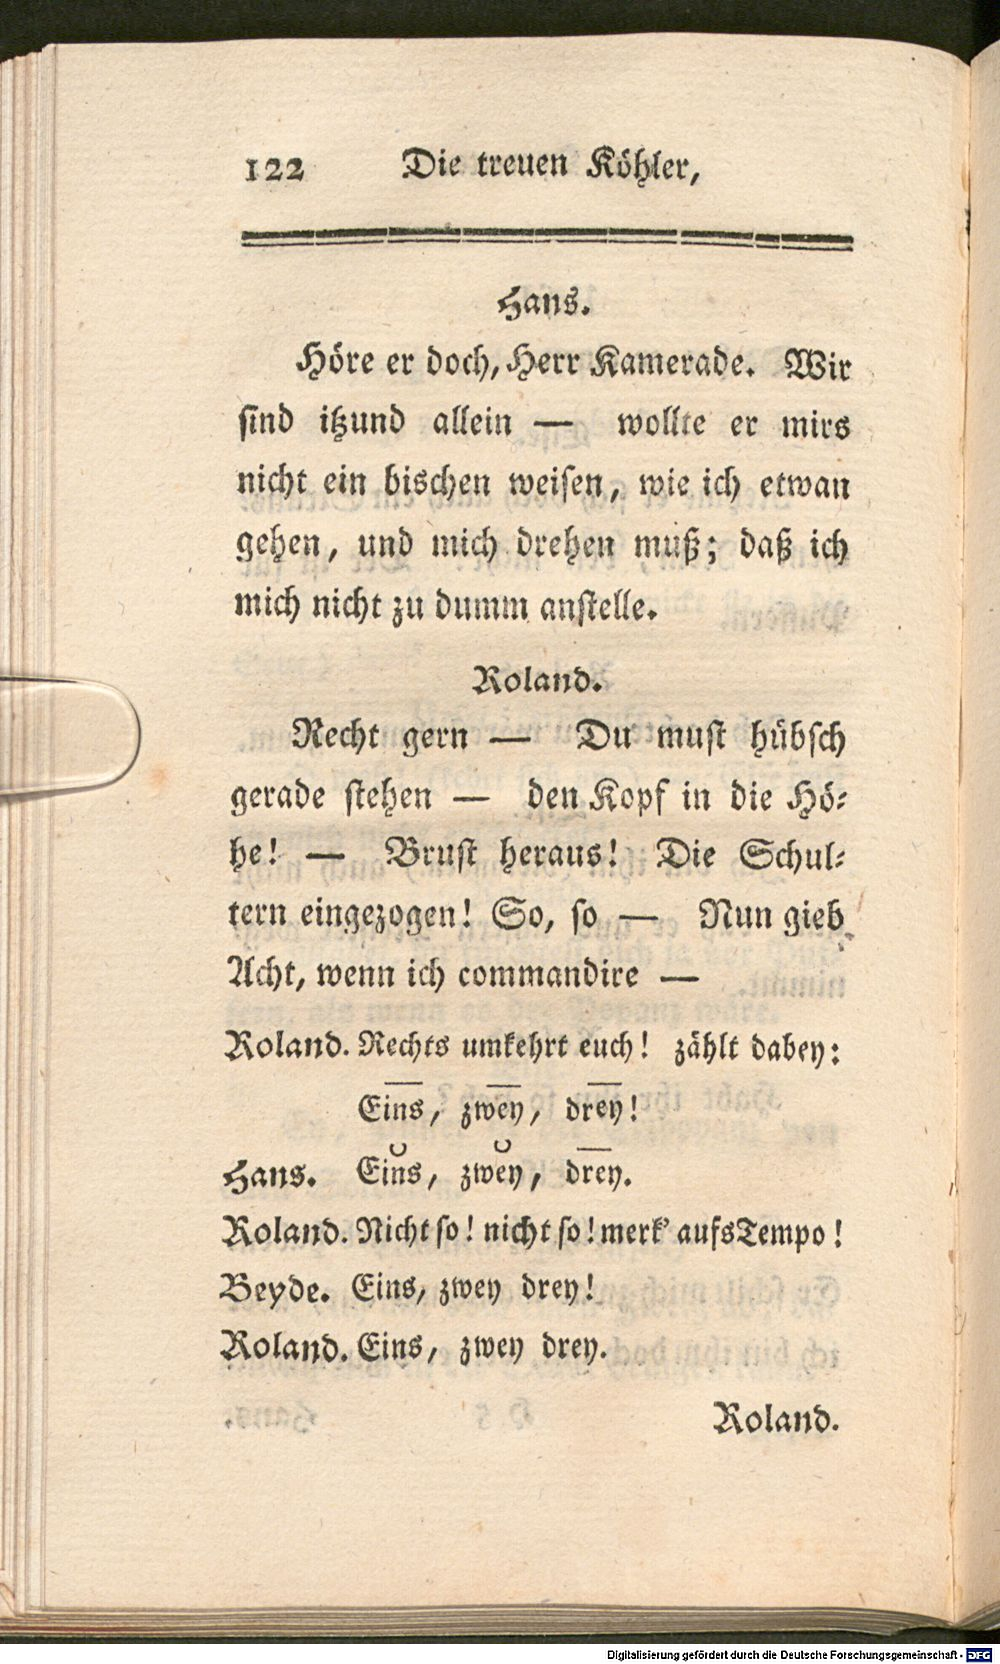 122 Die treuen Köhler,
Hans.
Höre er doch, Herr Kamerade. Wir
sind itzund allein — wollte er mirs
nicht ein bischen weisen, wie ich etwan
gehen, und mich drehen muß; daß ich
mich nicht zu dumm anstelle.
Roland.
Recht gern — Du must hübsch
gerade stehen — den Kopf in die Hö-
he! — Brust heraus! Die Schul-
tern eingezogen! So, so — Nun gieb
Acht, wenn ich commandire —
Roland. Rechts umkehrt euch! zählt dabey:
Eins, zwey, drey!
Hans. Eins, zwey, drey.
Roland. Nicht so! nicht so! merk' aufs Tempo!
Beyde. Eins, zwey drey!
Roland. Eins, zwey drey.
Roland.
Digitalisierung gefördert durch die Deutsche Forschungsgemeinschaft - DFG